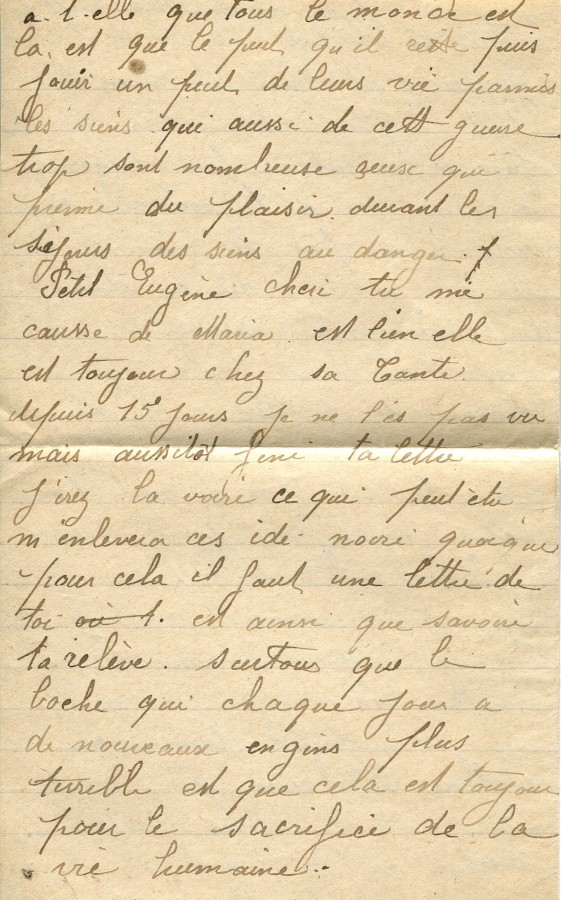 a.t.elle que tous le monde est
la est que le peut qu'il reste puis
jouir un peut de leurs vie parmis
les siens qui aussi de cett guerre
trop sont nombreuse ceux qui
prenne du plaisir durant les
séjours des siens au danger.
Petit Eugène cheri tu me
causse de Maria est bien elle
est toujour chez sa Tante
depuis 15 jours je ne l'es pas vu
mais aussitôt fini ta lettre
j'irez la voire ce qui peut etre
m'enlevera ces idé noire quoique
pour cela il faut une lettre de
toi est ainsi que savoire
ta relève. surtous que le
boche qui chaque jour a
de nouveaux engins plus
terrible est que cela est toujour
pour le sacrifice de la
vie humaine.